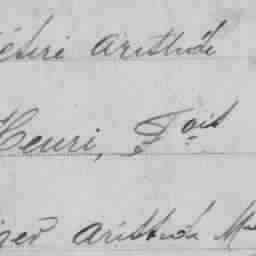 ésiré aristide
Henri, Fois
aristide